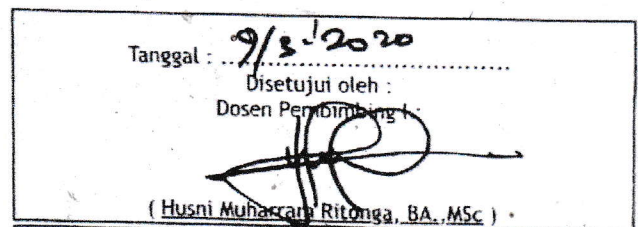 Tanggal : 9/3-2020
Disetujui oleh :
Dosen Pembimbing I :
( Husni Muharram Ritonga, BA., MSc )